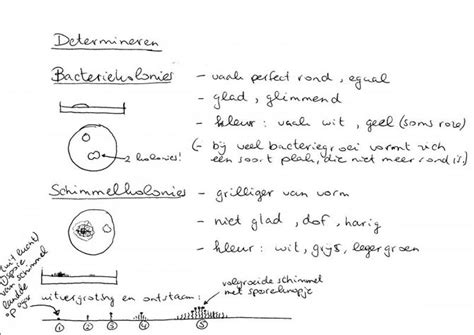 Determineren
Bacteriekolonies - vaak perfect rond, egaal
- glad, glimmend
- kleur: vaak wit, geel (soms roze)
2 kolonies!
(- bij veel bacteriegroei vormt zich
een soort plak, die niet meer rond is.)
Schimmelkolonies - grilliger van vorm
- niet glad, dof, harig
- kleur: wit, grijs, legergroen
(uit lucht)
1 spore
van schimmel
landde
op agar
uitvergroting en ontstaan:
volgroeide schimmel
met sporeknopje
1 2 3 4 5